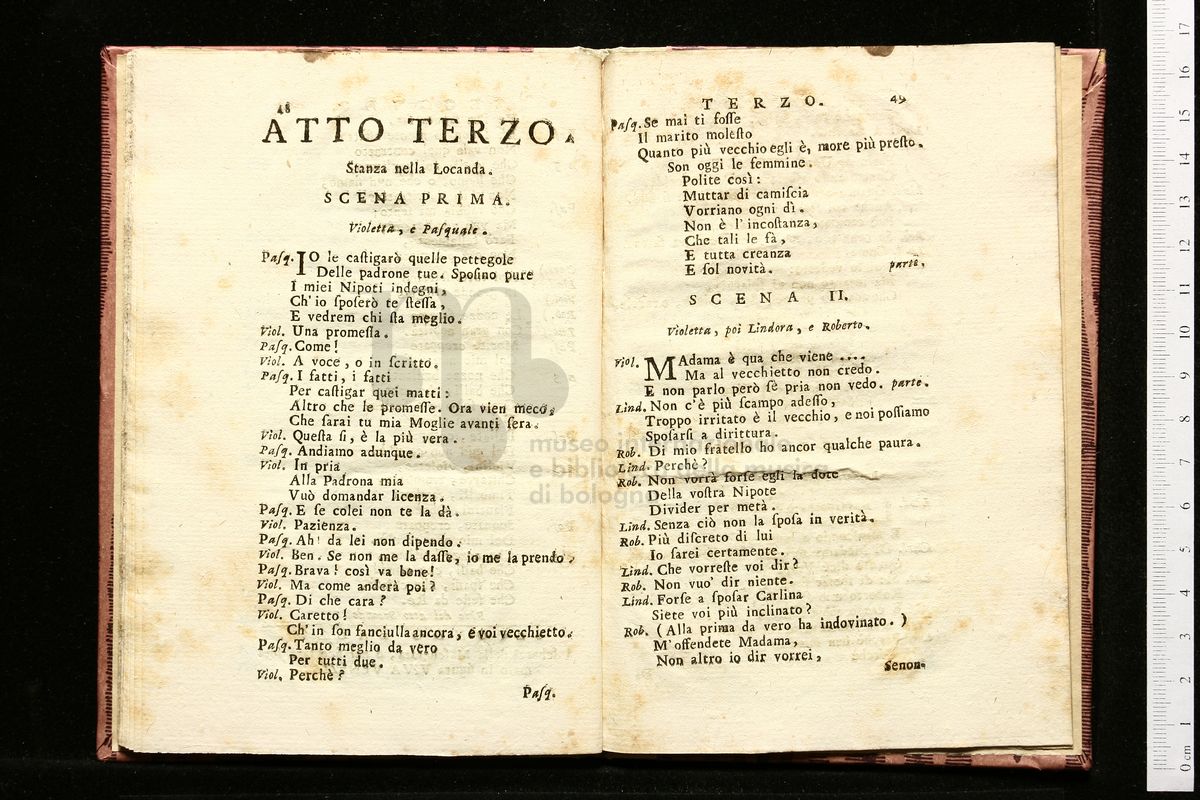 48
ATTO TERZO.
Stanza nella Locanda.
SCENA PRIMA.
Violetta, e Pasquale.
Pasq. IO le caſtigarò quelle pettegole
Delle padrone tue. Spoſino pure
I miei Nipoti indegni,
Ch'io ſpoſerò te ſteſſa,
E vedrem chi ſta meglio.
Viol. Una promeſſa.
Pasq. Come!
Viol. A voce, o in ſcritto.
Paſq. I fatti, i fatti
Per caſtigar quei matti:
Altro che le promeſſe. Ora vien meco,
Che ſarai tu mia Moglie avanti ſera.
Viol. Queſta ſi, è la più vera.
Paſq. Andiamo adunque.
Viol. In pria
Alla Padrona mia
Vuò domandar licenza.
Paſq. E ſe colei non te la dà.
Viol. Pazienza.
Paſq. Ah! da lei non dipendo.
Viol. Ben. Se non me la daſſe, io me la prendo.
Paſq. Brava! così va bene!
Viol. Ma come anderà poi?
Paſq. Di che cara?
Viol. Caretto!
Ch'in ſon fanciulla ancora, e voi vecchietto.
Paſq. Tanto meglio da vero
Per tutti due.
Viol. Perchè?
Paſq.
TERZO. 49
Paſq. Se mai ti foſſe
Il marito moleſto
Quanto più vecchio egli è, more più preſto.
Son oggi le femmine.
Polite così:
Muttar di camiſcia
Vorriano ogni dì.
Non è l'incoſtanza,
Che tali le fà,
E tutta creanza
E ſol novità. parte.
SCENA II.
Violetta, poi Lindora, e Roberto.
Viol. MAdama è qua che viene ....
Ma al vecchietto non credo.
E non parlo però ſe pria non vedo. parte.
Lind. Non c'è più ſcampo adeſſo,
Troppo irritato è il vecchio, e noi poſſiamo
Spoſarſi a dirittura.
Rob. Di mio fratello ho ancor qualche paura.
Lind. Perchè?
Rob. Non vorrà forſe egli la dote
Della voſtra Nipote
Divider per metà.
Lind. Senza ciò non la ſpoſa in verità.
Rob. Più diſcreto di lui
Io ſarei certamente.
Lind. Che vorreſte voi dir?
Rob. Non vuo' dir niente.
Lind. Forſe a ſpoſar Carlina
Siete voi più inclinato?
Rob. (Alla prima da vero ha indovinato.)
M'offendete Madama,
Non altro io dir vorrei,
Senon-
museo internazionale
e biblioteca della musica
di bologna
0 cm 1 2 3 4 5 6 7 8 9 10 11 12 13 14 15 16 17